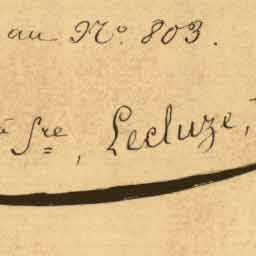 au N.º 803.
à fre, Lecluze,